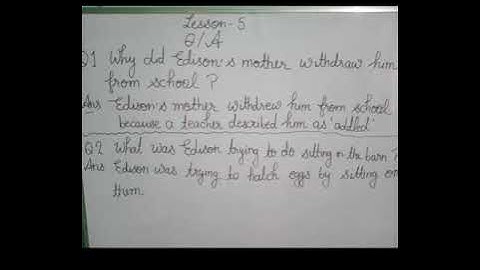 Lesson-5
Q/A
Q1 Why did Edison's mother withdraw him
from school ?
Ans Edison's mother withdrew him from school
because a teacher described him as 'addled'
Q2 What was Edison trying to do sitting in the barn ?
Ans Edison was trying to hatch eggs by sitting on
them.